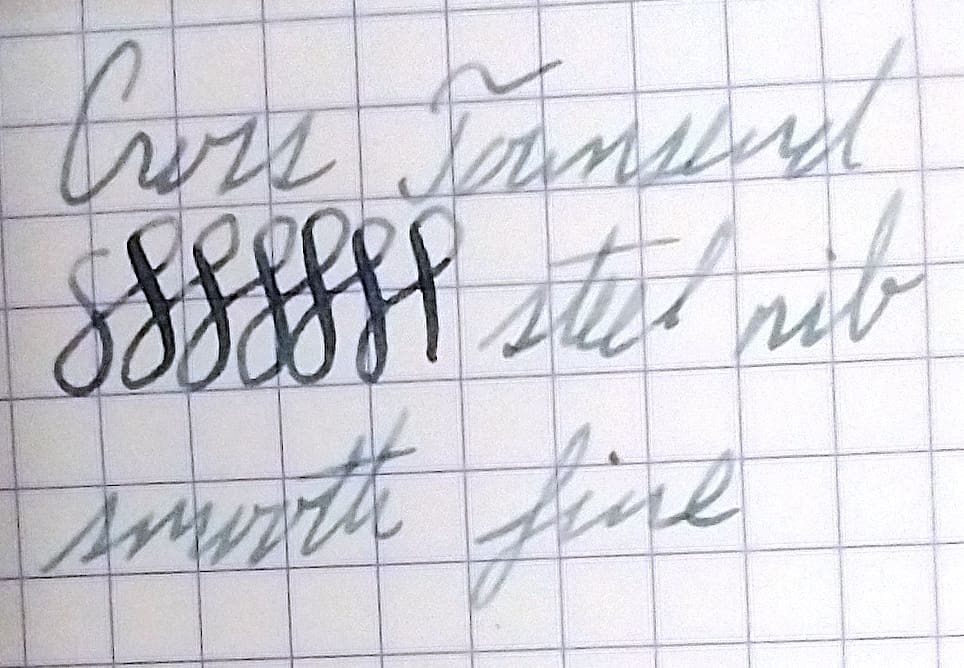 Cross Townsend
steel nib
smooth fine